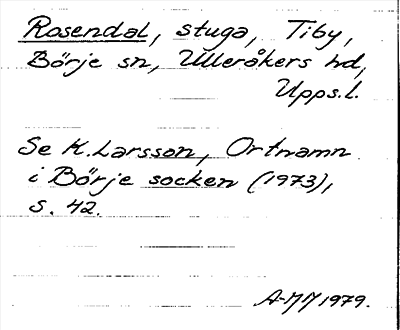 Rosendal, stuga, Tiby,
Börje sn, Ulleråkers hd,
Upps.l.
Se K. Larsson, Ortnamn
i Börje socken (1973),
s. 42.
A-MM 1979.